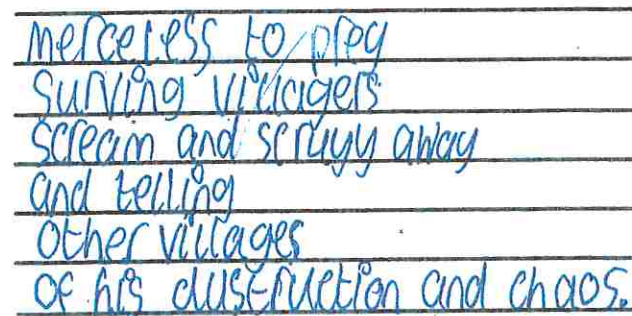 merceless to prey
Surving villagers
scream and scruyy away
and telling
other villages
of his dustruction and chaos.